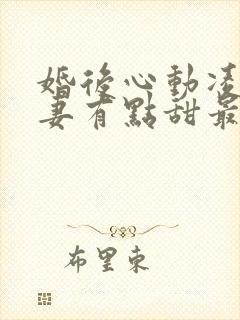 婚後心動凌
妻有點甜最
布里東